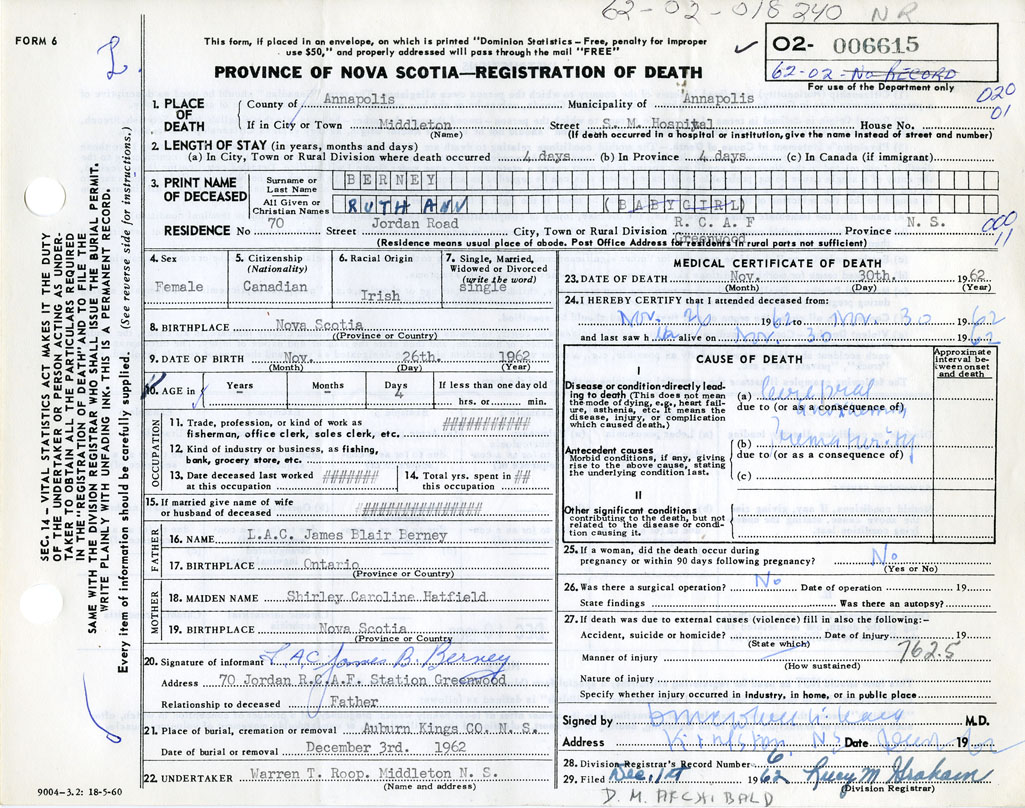 62-02-018240 NR
FORM 6
L
This form, if placed in an envelope, on which is printed "Dominion Statistics—Free, penalty for improper
use $50," and properly addressed will pass through the mail "FREE"
✓ 02- 006615
62-02- No RECORD
For use of the Department only
PROVINCE OF NOVA SCOTIA—REGISTRATION OF DEATH
020
01
1. PLACE OF DEATH
County of Annapolis Municipality of Annapolis
If in City or Town Middleton Street S. M. Hospital House No.
(Name) (If death occurred in a hospital or institution, give the name instead of street and number)
2. LENGTH OF STAY (in years, months and days)
(a) In City, Town or Rural Division where death occurred 4 days (b) In Province 4 days (c) In Canada (if immigrant)
3. PRINT NAME OF DECEASED
Surname or Last Name BERNEY
All Given or Christian Names RUTH ANN (BABYGIRL)
RESIDENCE No 70 Street Jordan Road City, Town or Rural Division R.C.A.F Greenwood Province N.S.
000
11
(Residence means usual place of abode. Post Office Address for residents in rural parts not sufficient)
4. Sex
Female
5. Citizenship
(Nationality)
Canadian
6. Racial Origin
Irish
7. Single, Married, Widowed or Divorced
(write the word)
single
8. BIRTHPLACE Nova Scotia
((Province or Country)
9. DATE OF BIRTH Nov. 26th. 1962
(Month) (Day) (Year)
10. AGE in
Years Months Days If less than one day old
- - 4 hrs. or min.
OCCUPATION
11. Trade, profession, or kind of work as
fisherman, office clerk, sales clerk, etc. ###########
12. Kind of industry or business, as fishing,
bank, grocery store, etc. ##########
13. Date deceased last worked
at this occupation #######
14. Total yrs. spent in
this occupation ##
15. If married give name of wife
or husband of deceased ###############
FATHER
16. NAME L.A.C. James Blair Berney
17. BIRTHPLACE Ontario
(Province or Country)
MOTHER
18. MAIDEN NAME Shirley Caroline Hatfield
19. BIRTHPLACE Nova Scotia
(Province or Country)
20. Signature of informant LAC James B. Berney
Address 70 Jordan R.C.A.F. Station Greenwood
Relationship to deceased Father
21. Place of burial, cremation or removal Auburn Kings CO. N. S.
Date of burial or removal December 3rd. 1962
22. UNDERTAKER Warren T. Roop. Middleton N. S.
(Name and address)
9004-3.2: 18-5-60
MEDICAL CERTIFICATE OF DEATH
23. DATE OF DEATH Nov. 30th. 1962
(Month) (Day) (Year)
24. I HEREBY CERTIFY that I attended deceased from:
Nov. 26 1962 to Nov. 30 1962
and last saw h alive on Nov. 30 1962
CAUSE OF DEATH
Approximate interval between onset and death
I
Disease or condition directly leading to death (This does not mean the mode of dying, e.g., heart failure, asthenia, etc. It means the disease, injury, or complication which caused death.)
(a) Cerebral
due to (or as a consequence of)
Antecedent causes
Morbid conditions, if any, giving rise to the above cause, stating the underlying condition last.
(b) Prematurity
due to (or as a consequence of)
(c)
II
Other significant conditions
contributing to the death, but not related to the disease or condition causing it.
25. If a woman, did the death occur during
pregnancy or within 90 days following pregnancy? No
(Yes or No)
26. Was there a surgical operation? No Date of operation 19
State findings Was there an autopsy?
27. If death was due to external causes (violence) fill in also the following:—
Accident, suicide or homicide? Date of injury 19
(State which)
Manner of injury 762.5
(How sustained)
Nature of injury
Specify whether injury occurred in industry, in home, or in public place
Signed by M.D.
Address Kingston NS Date 19 62
28. Division Registrar's Record Number 6
29. Filed Dec. 1st 1962 Lucy M Graham
(Division Registrar)
D. M. ARCHIBALD
SEC. 14 — VITAL STATISTICS ACT MAKES IT THE DUTY
OF THE UNDERTAKER OR PERSON ACTING AS UNDER-
TAKER TO OBTAIN ALL THE PARTICULARS REQUIRED
IN THE "REGISTRATION OF DEATH" AND TO FILE THE
SAME WITH THE DIVISION REGISTRAR WHO SHALL ISSUE THE BURIAL PERMIT.
WRITE PLAINLY WITH UNFADING INK. THIS IS A PERMANENT RECORD.
Every item of information should be carefully supplied. (See reverse side for instructions.)